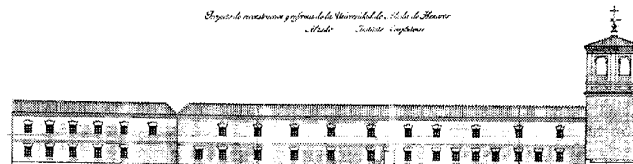 Proyecto de reconstruccion y reforma de la Universidad de Alcala de Henares
Alzado Instituto Complutense